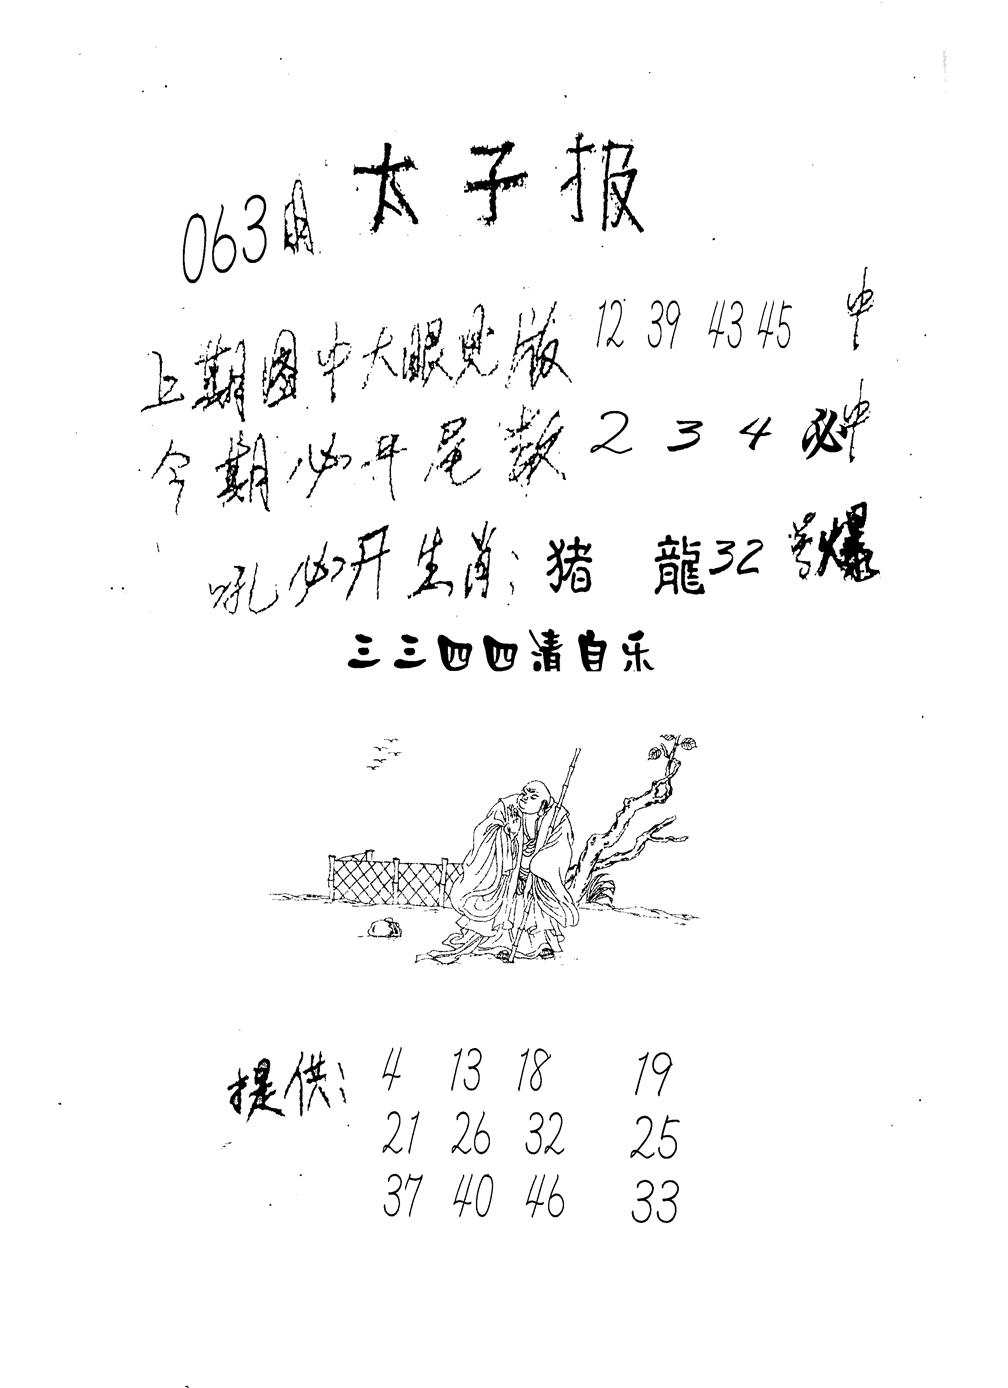 太子报
063期
上期图中大眼见版 12 39 43 45 中
今期必开尾数 2 3 4 必中
吼必开生肖: 猪 龍 32 号爆
三三四四清自乐
提供: 4 13 18 19
21 26 32 25
37 40 46 33